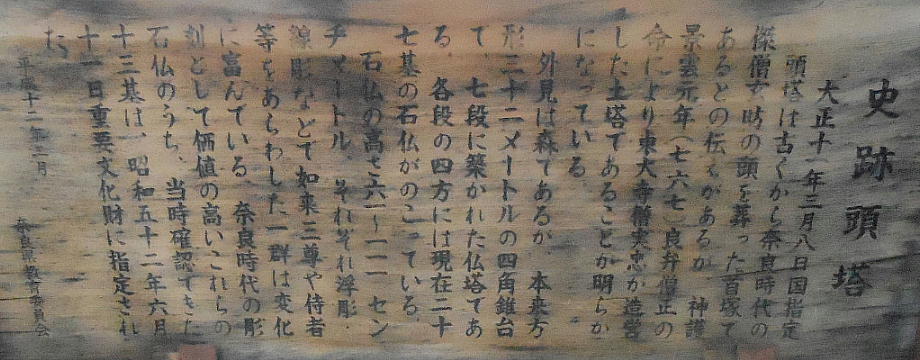 史跡頭塔
大正十一年三月八日国指定
頭塔は古くから奈良時代の
傑僧玄昉の頭を葬った首塚で
あるとの伝えがあるが、神護
景雲元年(七六七)良弁僧正の
命により東大寺僧実忠が造営
した土塔であることが明らか
になっている。
外見は森であるが、本来方
形三十二メートルの四角錐台
で、七段に築かれた仏塔であ
る。各段の四方には現在二十
七基の石仏がのこっている。
石仏の高さ六一~一一一セン
チメートル、それぞれ浮彫・
線彫などで如来三尊や侍者
等をあらわした一群は変化
に富んでいる。奈良時代の彫
刻として価値の高いこれらの
石仏のうち、当時確認できた
十三基は、昭和五十二年六月
十一日重要文化財に指定され
た。
平成十二年二月
奈良県教育委員会